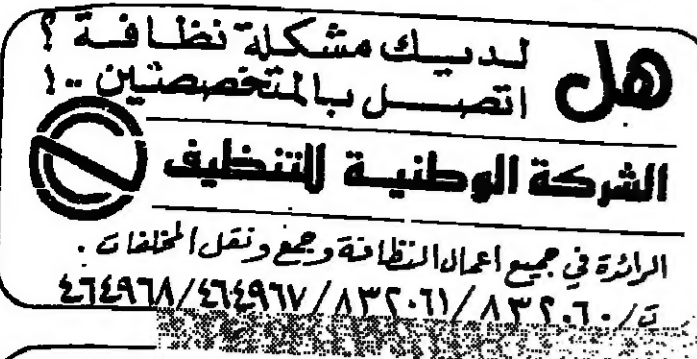 هل لديك مشكلة نظافة ؟
اتصل بالمتخصصين ..!
الشركة الوطنية للتنظيف
الرائدة في جميع اعمال النظافة وجمع ونقل المخلفات .
ت/٨٣٢٠٦٠/٨٣٢٠٦١/٤٦٤٩٦٧/٤٦٤٩٦٨